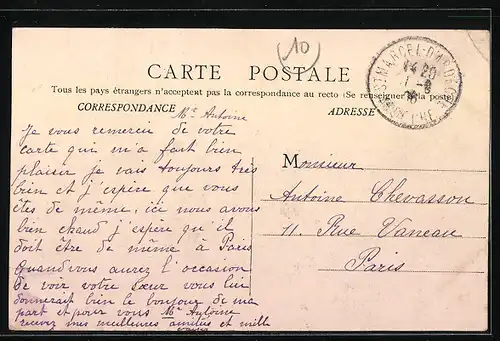 (10)
CARTE POSTALE
Tous les pays étrangers n'acceptent pas la correspondance au recto (Se renseigner à la poste)
CORRESPONDANCE
ADRESSE
ST MARCEL-D'ARDÈCHE
14 20
1 -8
Mr Antoine
Je vous remercin de votre
carte qui m'a fait bien
plaisir je vais toujours très
bien et j'espère que vous
êtes de même, ici nous avons
bien chaud j'espere qu'il
doit être de même à Paris
Quand vous aurez l'occasion
de voir votre Sœur vous lui
donnerait bien le bonjour de ma
part et pour vous Mr Antoine
recevez mes meilleures amitiés et mille
Monsieur
Antoine Chevasson
11. Rue Vaneau
Paris